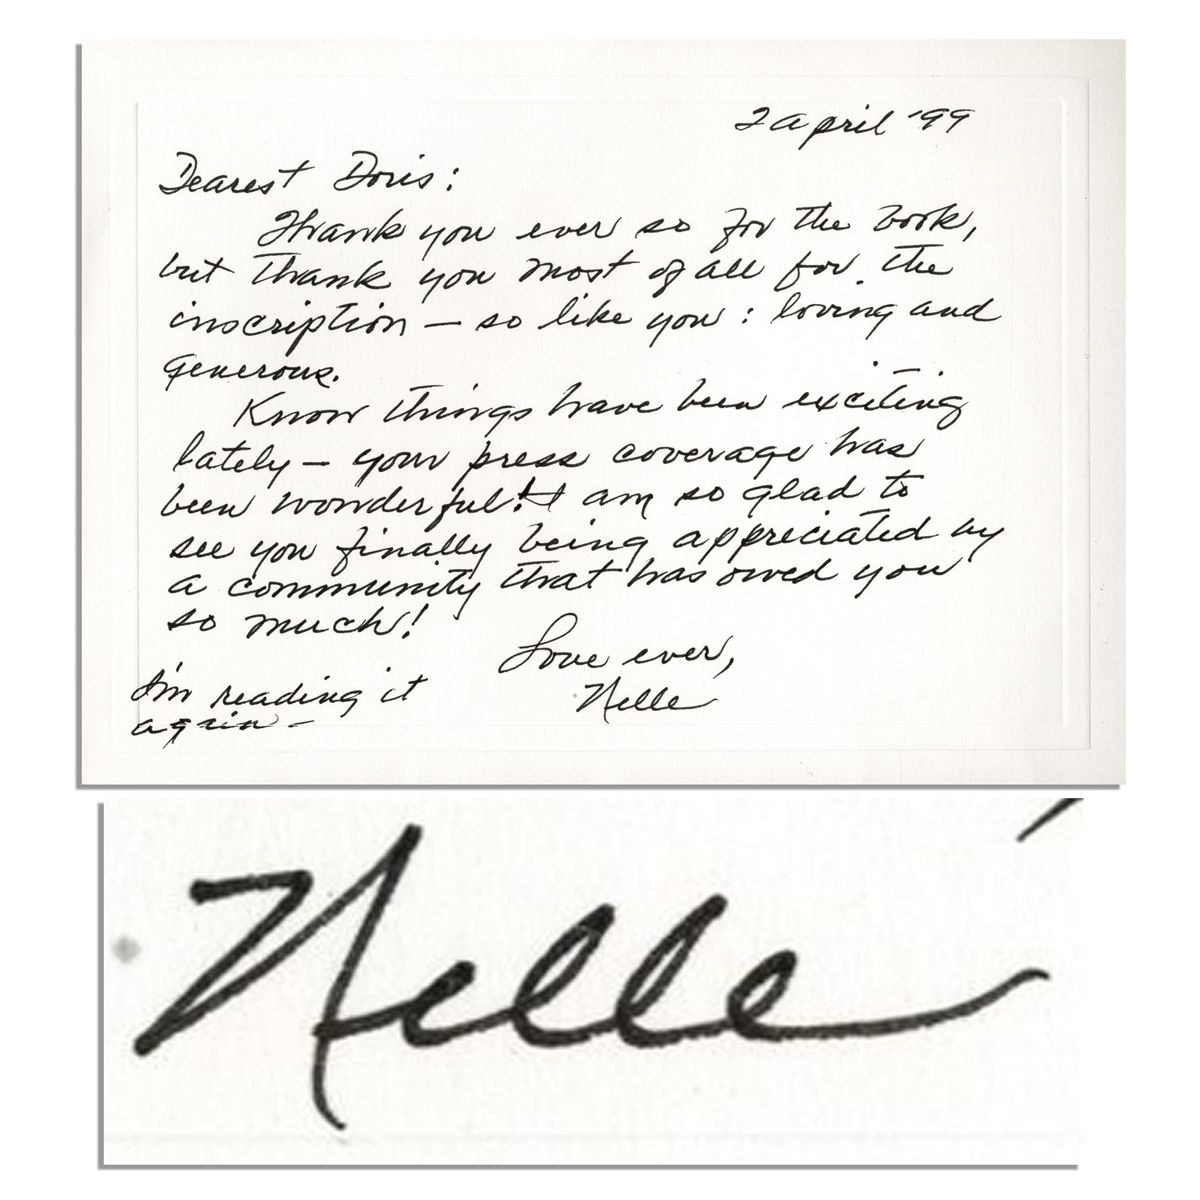 2 April '99
Dearest Doris:
Thank you ever so for the book,
but thank you most of all for the
inscription — so like you: loving and
generous.
Know things have been exciting
lately — your press coverage has
been wonderful! I am so glad to
see you finally being appreciated by
a community that has owed you
so much!
Love ever,
Nelle
I'm reading it
again —
Nelle